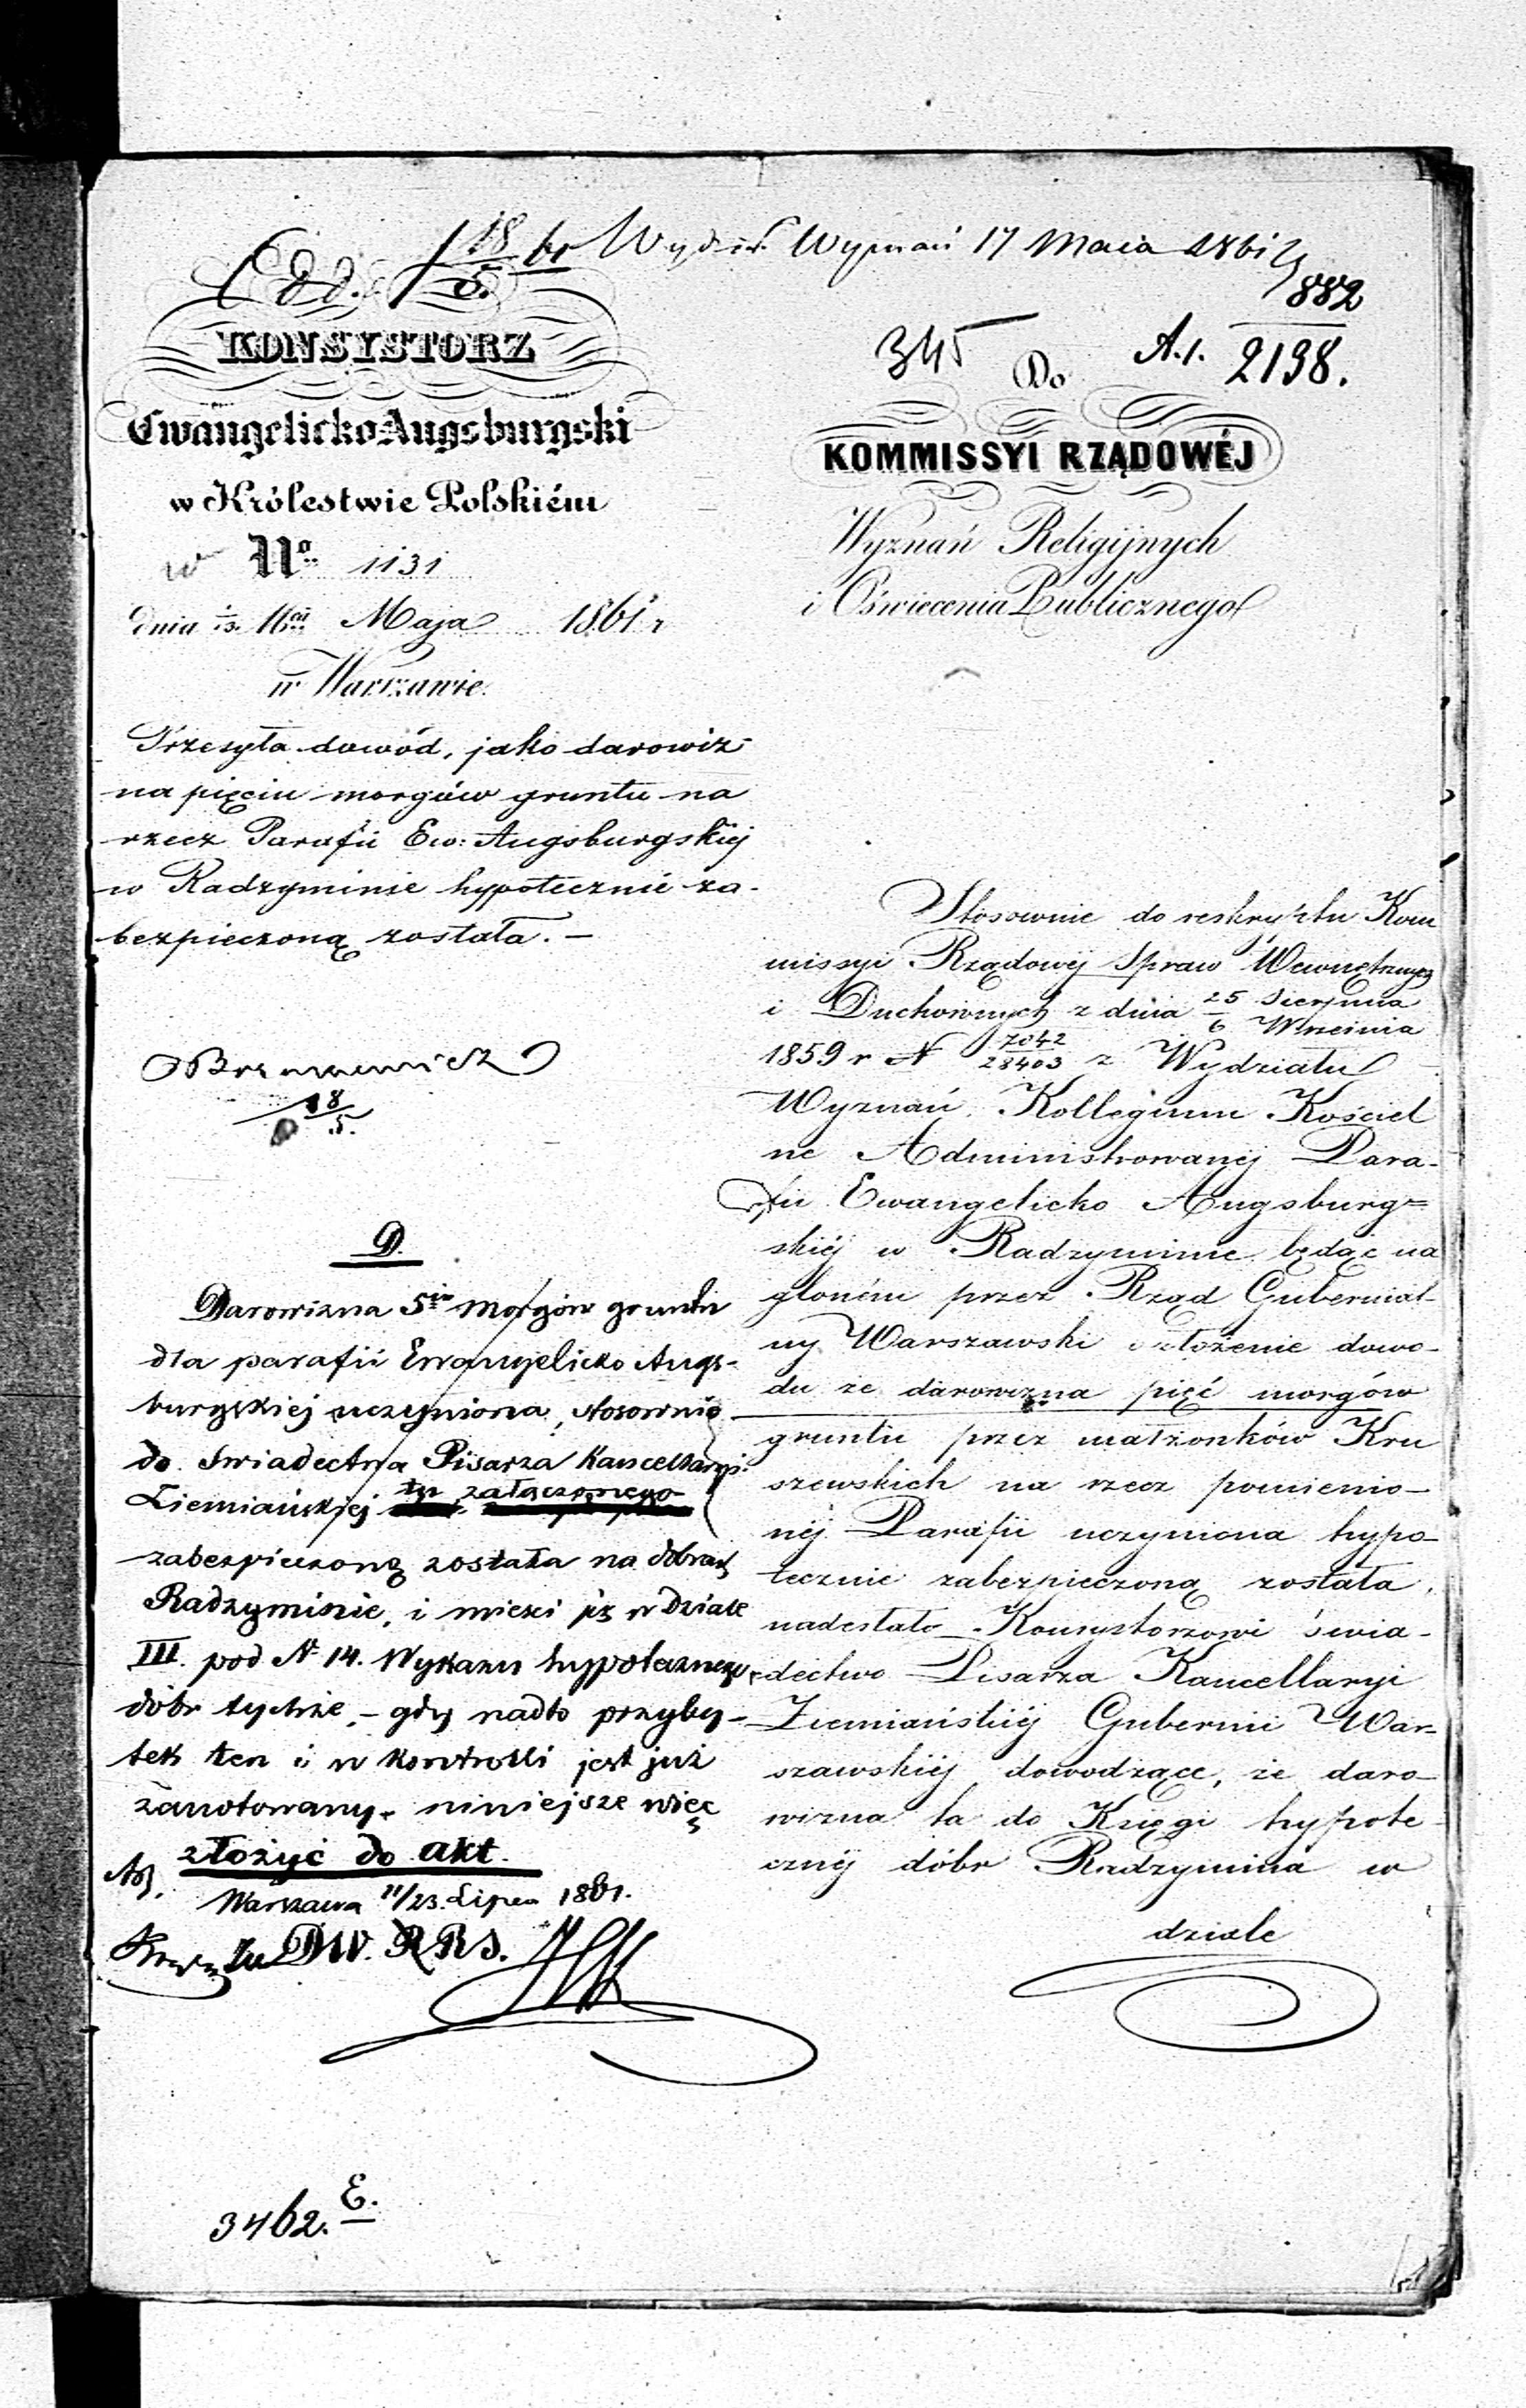 Odd. 18/5 61 Wydział Wyznań 17 Maia 1861
882
345 A.1. 2198.
KONSYSTORZ
Ewangelicko Augsburgski
w Królestwie Polskiém
w No 1131
dnia 16 Maja 1861 r
w Warszawie.
Przesyła dowód, jako darowiz
na pięciu morgów gruntu na
rzecz Parafii Ew: Augsburgskiej
w Radzyminie hypotecznie za-
bezpieczoną została. –
18/5.
D.
Darowizna 5ciu morgów gruntu
dla parafii Ewangelicko Augs-
burgskiej uczyniona, stosownie
do Swiadectwa Pisarza Kancellaryi
Ziemiańskiej tu załączonego
zabezpieczoną została na dobrach
Radzyminie, i mieści się w Dziale
III. pod N 14. Wykazu hypotecznego
dóbr tychże, – gdy nadto przyby-
tek ten i w kontrolli jest już
zanotowany. niniejsze więc
złożyć do akt.
Warszawa 11/23. Lipca 1861.
DW. RRS.
3462. E.
Do
KOMMISSYI RZĄDOWÉJ
Wyznań Religijnych
i Oświecenia Publicznego
Stosownie do reskryptu Kom
missyi Rządowej Spraw Wewnętrznych
i Duchownych z dnia 25 Sierpnia / 6 Września
1859 r N 7042/28403 z Wydziału
Wyznań, Kollegium Kościel
ne Administrowanéj Para-
fii Ewangelicko Augsburg=
skiéj w Radzyminie będąc na
gloném przez Rząd Gubernial-
ny Warszawski o złożenie dowo-
du że darowizna pięć morgów
gruntu przez małżonków Kru
szewskich na rzecz pomienio-
néj Parafii uczyniona hypo-
tecznie zabezpieczoną została,
nadesłało Konsystorzowi świa-
dectwo Pisarza Kancellaryi
Ziemiańskiéj Gubernii War-
szawskiéj dowodzące, że daro-
wizna ta do Księgi hypote-
cznéj dóbr Radzymina w
dziale